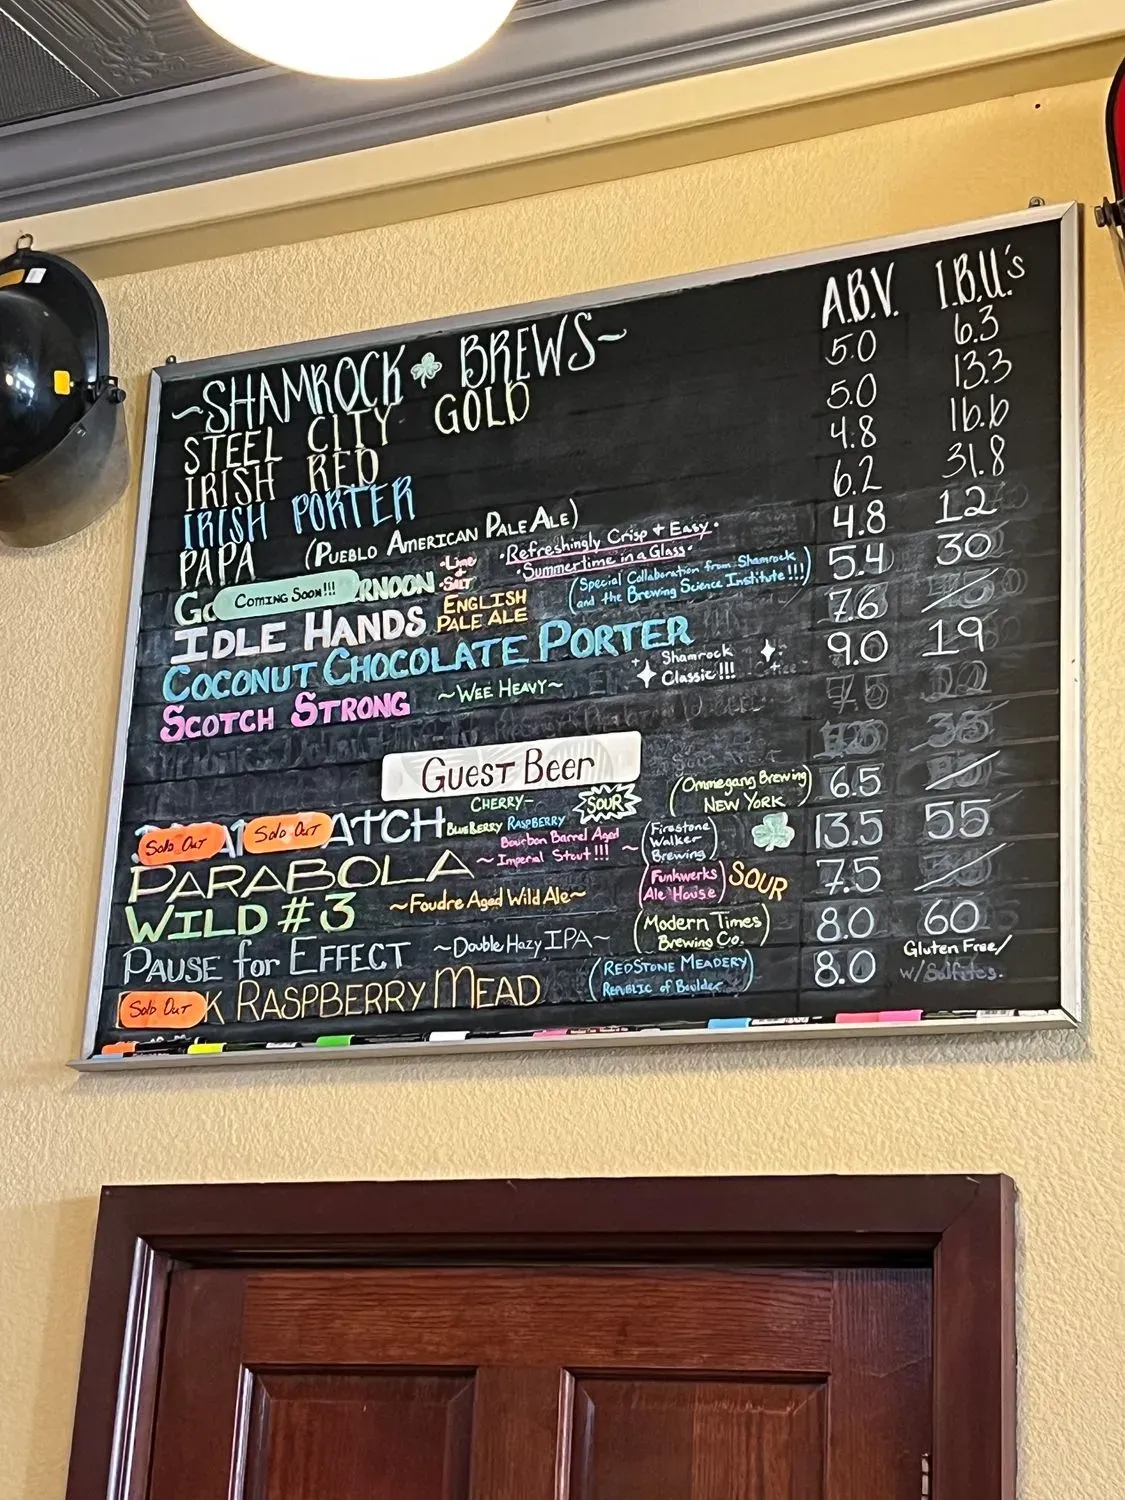 A.B.V. I.B.U.'s
~SHAMROCK BREWS~
STEEL CITY GOLD 5.0 6.3
IRISH RED 5.0 13.3
IRISH PORTER 4.8 16.6
PAPA (PUEBLO AMERICAN PALE ALE) 6.2 31.8
COMING SOON!!! RNOON •Lime & •SALT •Refreshingly Crisp + Easy• 4.8 12
•Summertime in a Glass•
IDLE HANDS ENGLISH PALE ALE (Special Collaboration from Shamrock and the Brewing Science Institute!!!) 5.4 30
COCONUT CHOCOLATE PORTER 7.6
SCOTCH STRONG ~WEE HEAVY~ Shamrock Classic!!! 9.0 19
GUEST BEER
SOLD OUT SOLD OUT ATCH CHERRY~ BLUEBERRY RASPBERRY SOUR (Ommegang Brewing NEW YORK) 6.5
PARABOLA ~Bourbon Barrel Aged Imperial Stout!!!~ (Firestone Walker Brewing) 13.5 55
WILD #3 ~Foudre Aged Wild Ale~ (Funkwerks Ale House) SOUR 7.5
PAUSE for EFFECT ~Double Hazy IPA~ (Modern Times Brewing Co.) 8.0 60
SOLD OUT K RASPBERRY MEAD (REDSTONE MEADERY REPUBLIC of Boulder) 8.0 Gluten Free/ w/Sulfites.